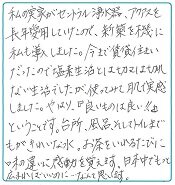 私の実家がセントラル浄水器、アクアスを
長年愛用していたので、新築を機に
私も導入しました。今まで賃貸住まい
だったので塩素生活とは切っても切れ
ない生活でしたが使ってみて肌で実感
しました。やはり、『良いものは良い!!』
ということです。台所、風呂、そしてトイレまで
もがきれいな水。お茶をいれるたびに
味の違いに感動を覚えます。日本中でもっと
広まればいいのに…なんて思います。